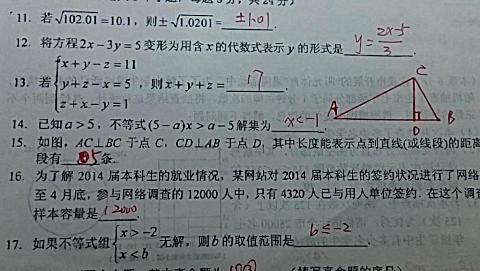 11. 若√102.01=10.1，则±√1.0201= ±1.01 .
12. 将方程2x-3y=5变形为用含x的代数式表示y的形式是 y=2x-5/3 .
13. 若{x+y-z=11 y+z-x=5 z+x-y=1，则x+y+z= 17 .
14. 已知a>5，不等式(5-a)x>a-5解集为 x<-1
15. 如图，AC⊥BC于点C，CD⊥AB于点D，其中长度能表示点到直线(或线段)的距离
段有 5 条.
C
A
D
B
16. 为了解2014届本科生的就业情况，某网站对2014届本科生的签约状况进行了网络
至4月底，参与网络调查的12000人中，只有4320人已与用人单位签约.在这个调查
样本容量是 12000 .
17. 如果不等式组{x>-2 x<b 无解，则b的取值范围是 b≤-2